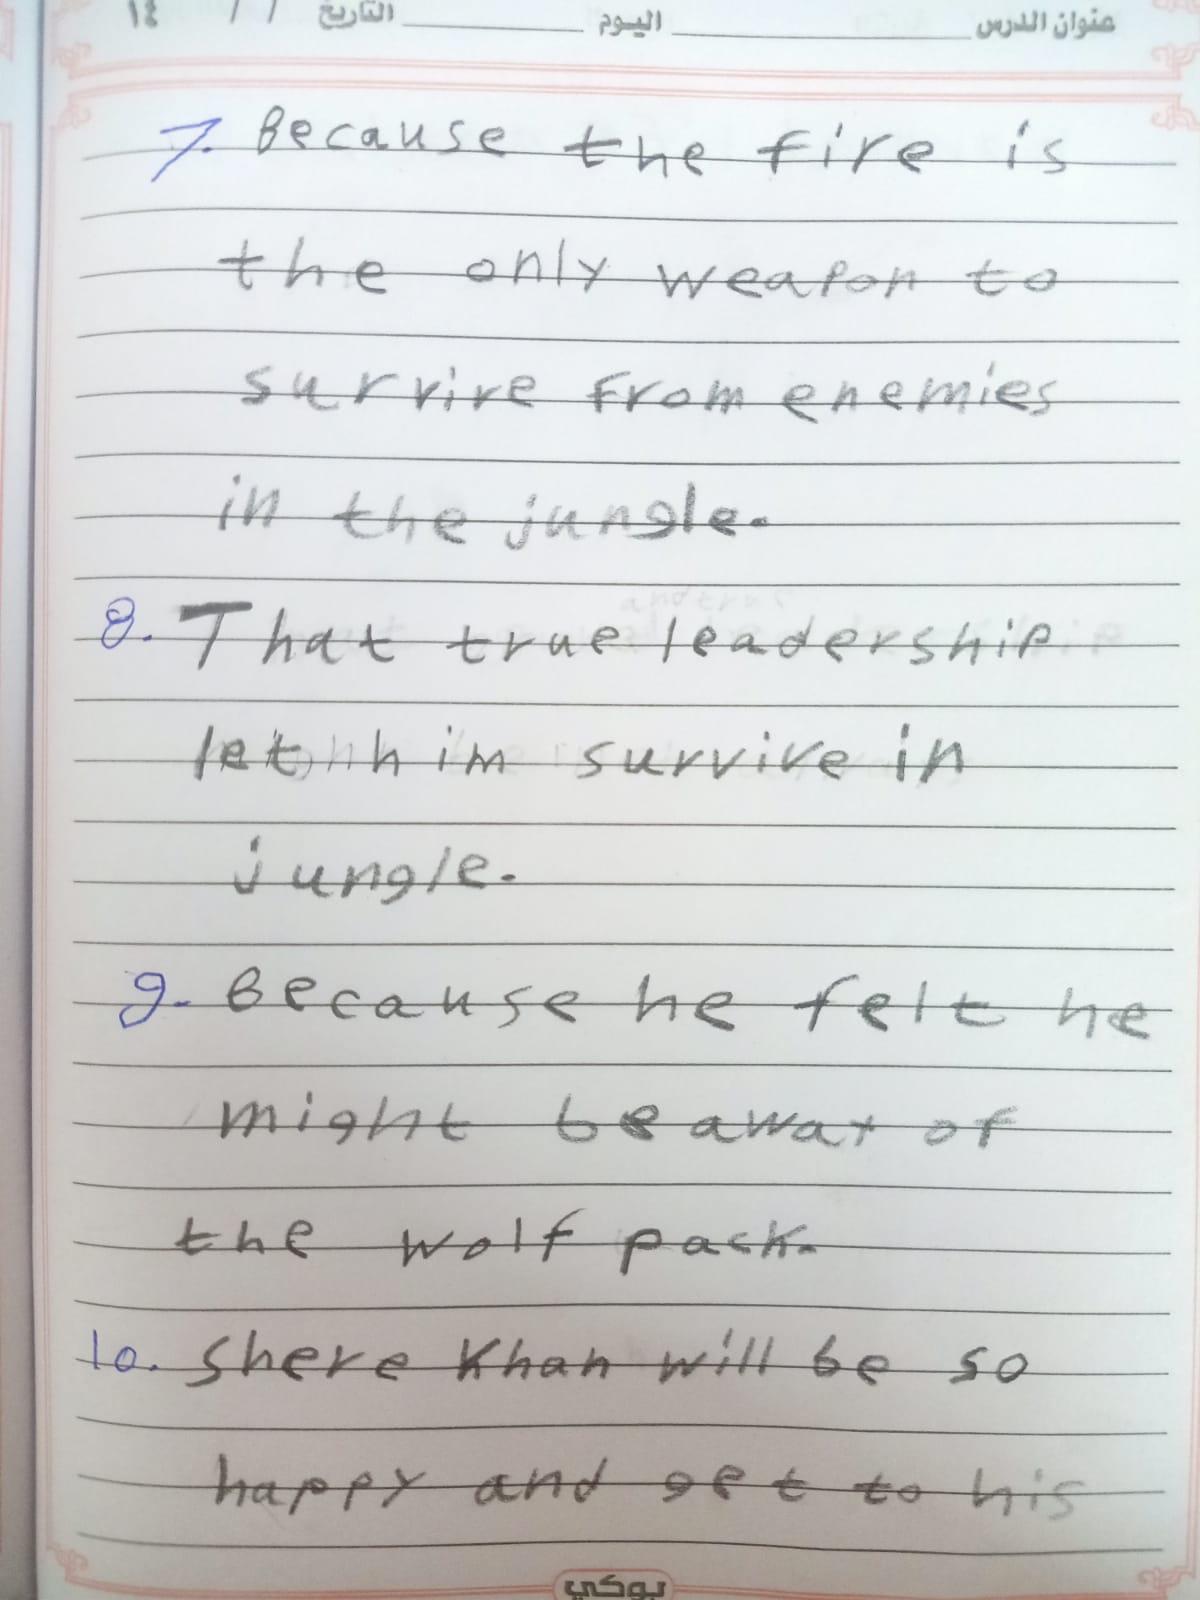 عنوان الدرس ____________ اليوم ____________ التاريخ / / ١٤
7. Because the fire is
the only weapon to
survive from enemies
in the jungle.
8. That true leadership
let him survive in
jungle.
9. Because he felt he
might be away of
the wolf pack.
10. Shere Khan will be so
happy and get to his
بوكي